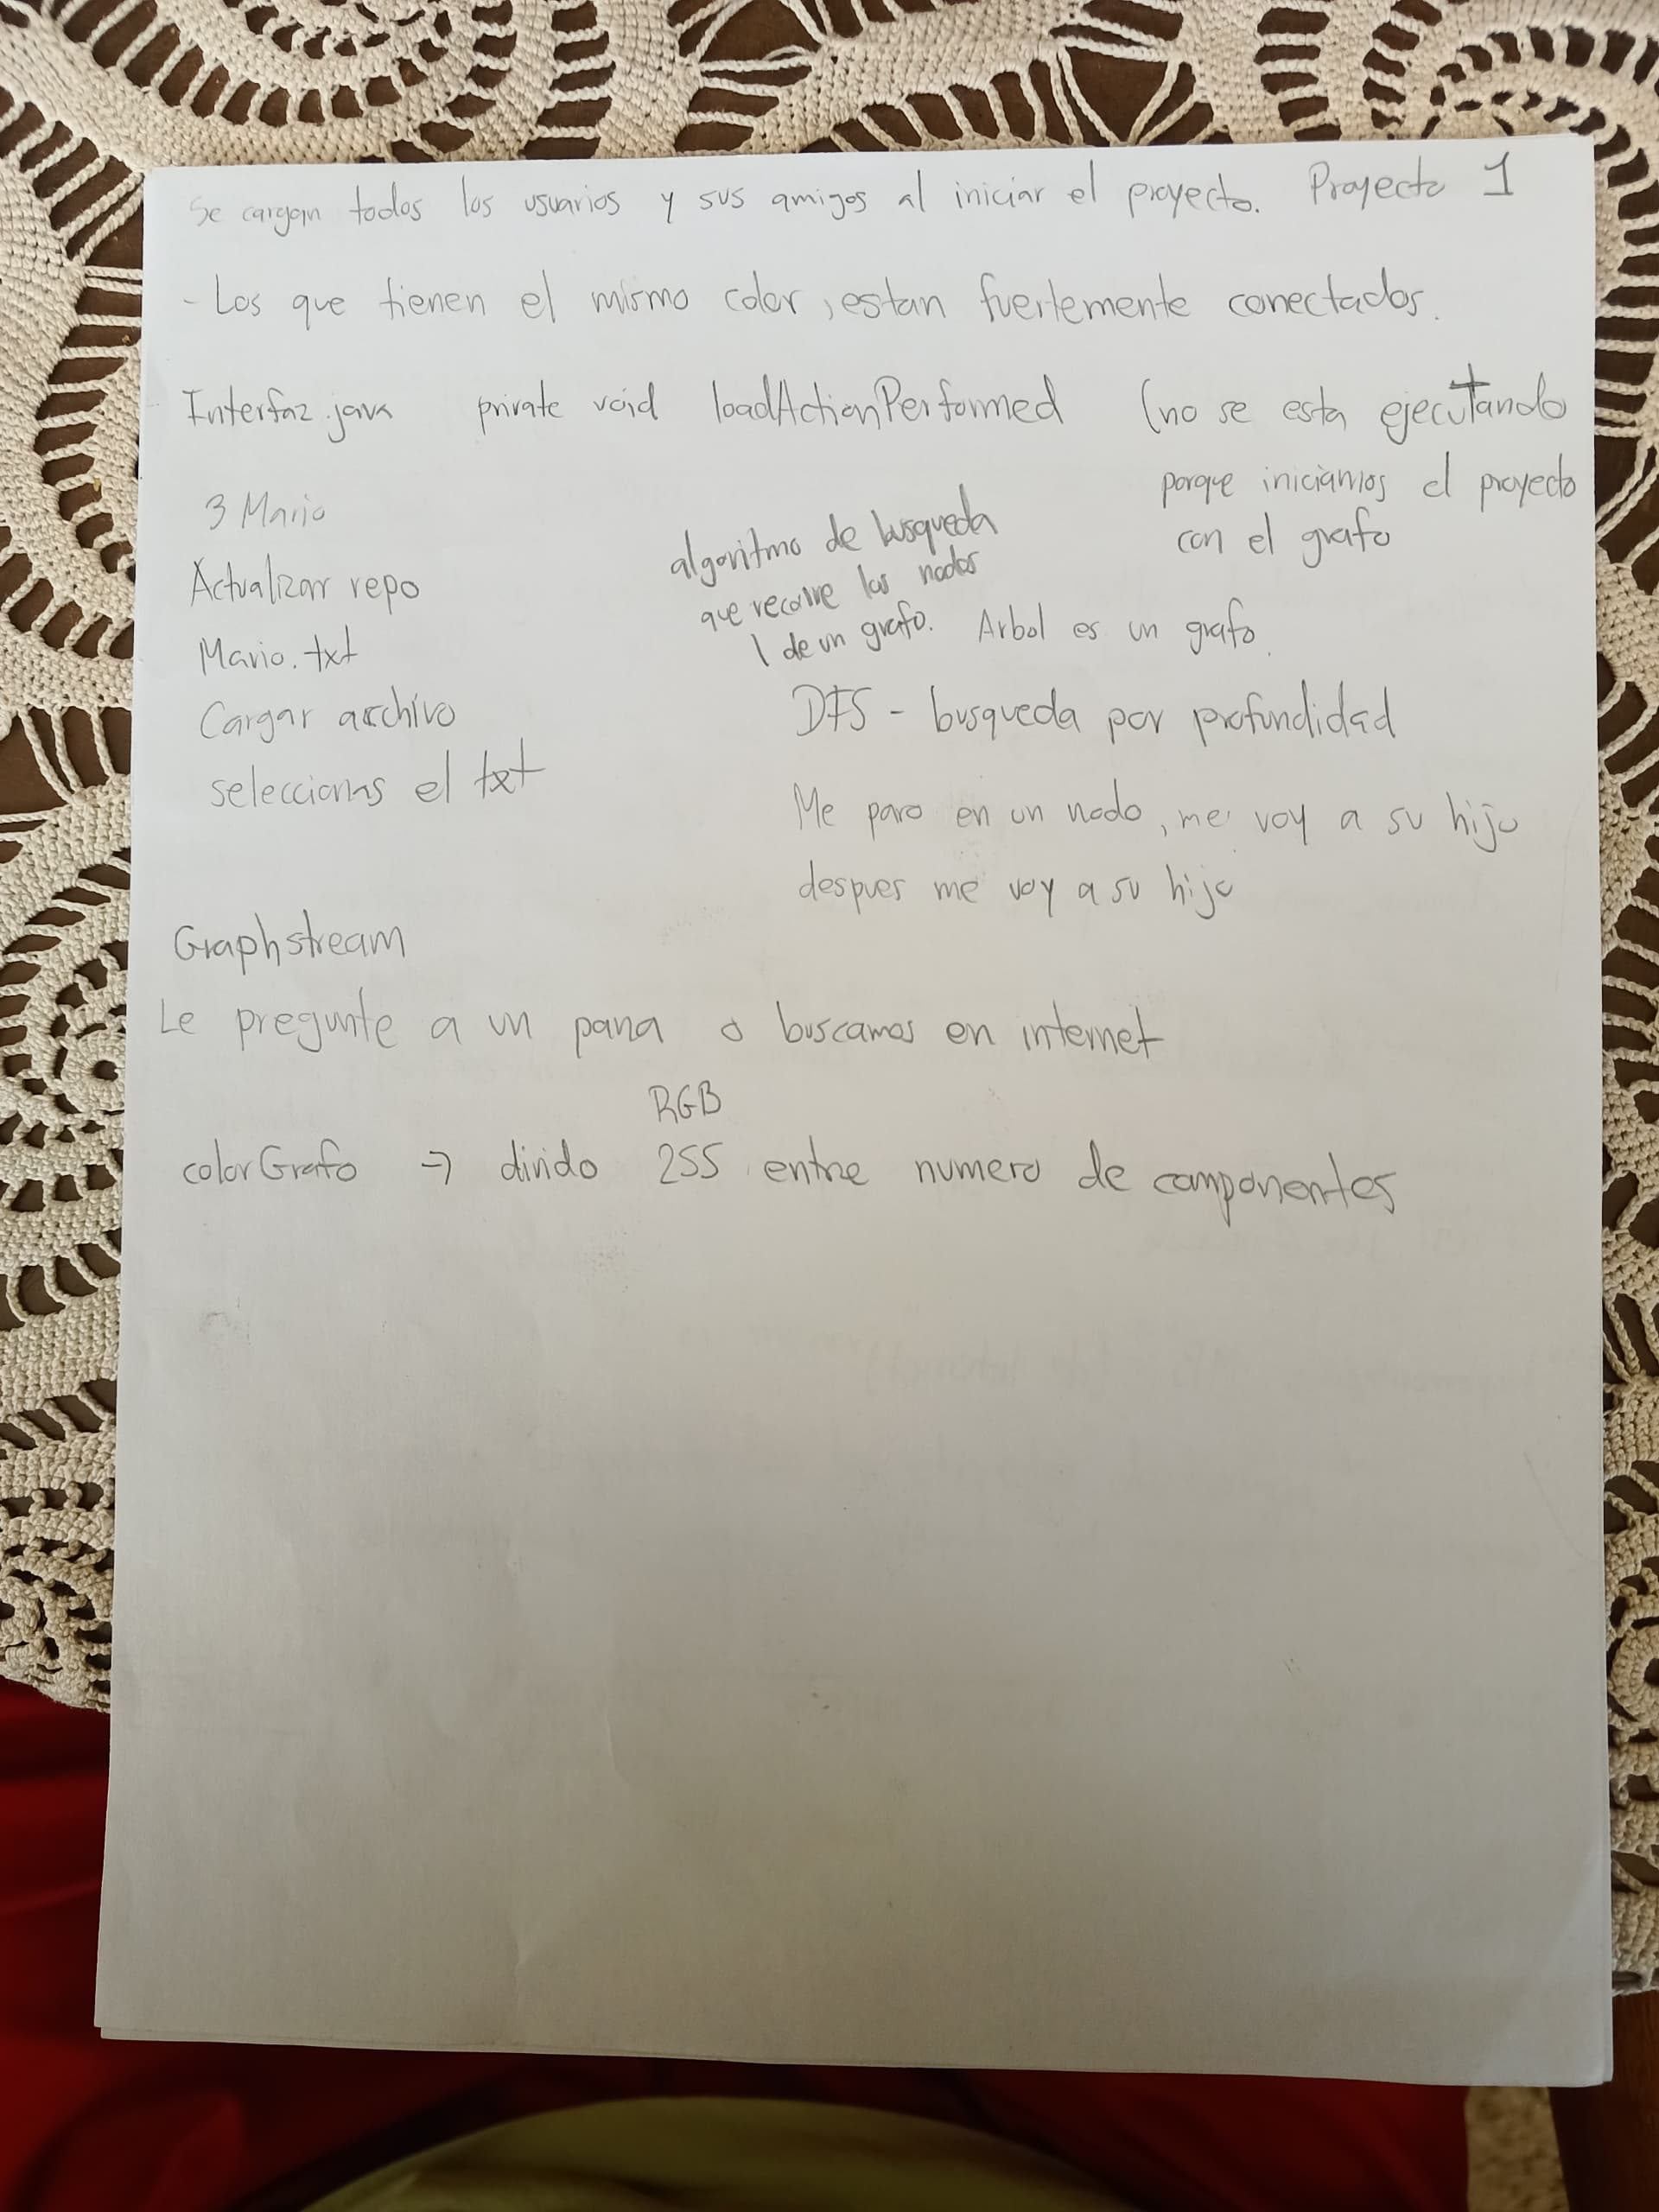 Se cargan todos los usuarios y sus amigos al iniciar el proyecto. Proyecto 1
- Los que tienen el mismo color, estan fuertemente conectados.
Interfaz.java private void loadActionPerformed (no se esta ejecutando
porque iniciamos el proyecto
con el grafo
3 Mario
Actualizar repo
Mario.txt
Cargar archivo
seleccionas el txt
algoritmo de busqueda
que recorre los nodos
de un grafo. Arbol es un grafo.
DFS - busqueda por profundidad
Me paro en un nodo, me voy a su hijo
despues me voy a su hijo
Graphstream
Le pregunte a un pana o buscamos en internet
RGB
colorGrafo → divido 255 entre numero de componentes